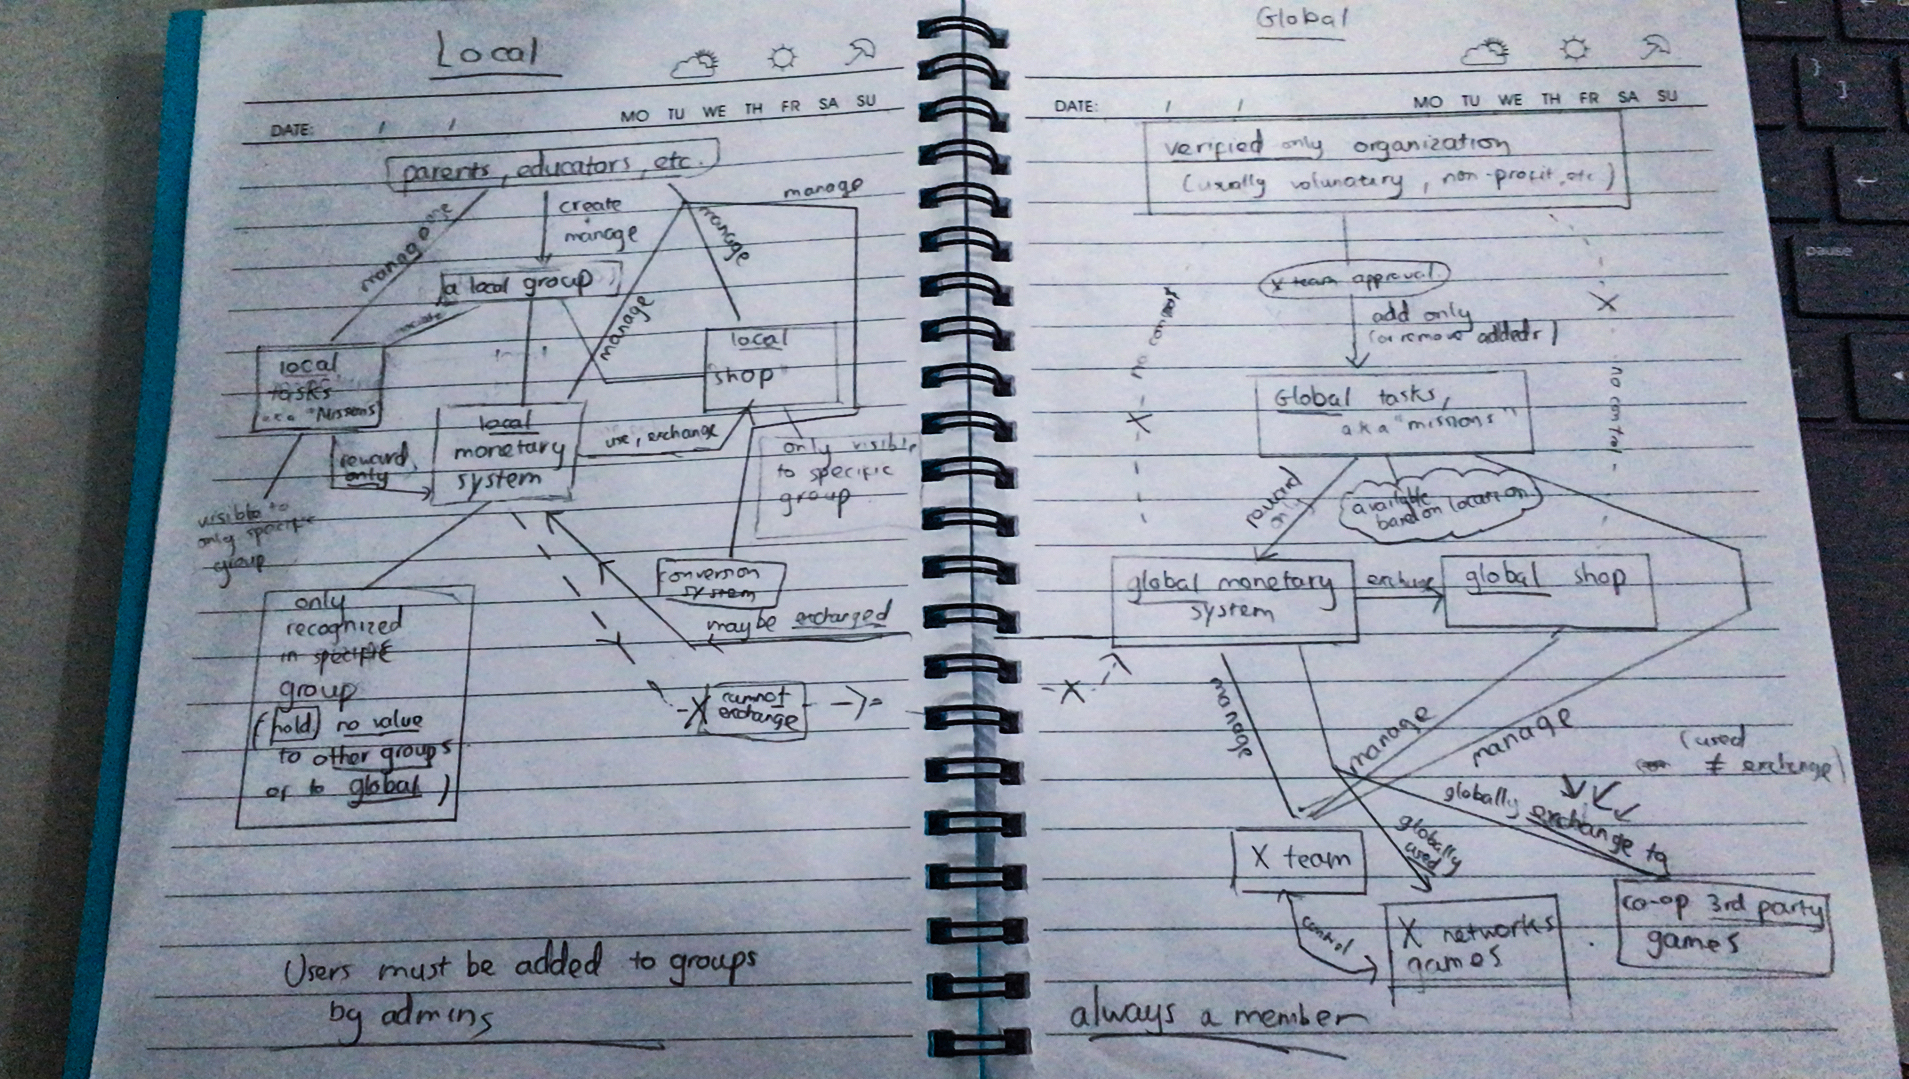 Local
DATE: / /
MO TU WE TH FR SA SU
parents, educators, etc.
manage
create
manage
manage
manage
manage
a local group
local
tasks
aka "Missions"
local
shop
local
monetary
system
reward
only
use, exchange
only visible
to specific
group
visible to
only specific
group
conversion
system
maybe exchanged
only
recognized
in specific
group
(hold) no value
to other groups
or to global)
X cannot
exchange
Users must be added to groups
by admins
Global
DATE: / /
MO TU WE TH FR SA SU
verified only organization
(usually volunatary, non-profit, etc)
X team approval
add only
(or remove added)
no control
X
X
no control
Global tasks,
aka "missions"
reward
only
available
based on location
global monetary
system
exchange
global shop
X
manage
manage
manage
(used
≠ exchange)
globally exchange to
globally
used
X team
control
X networks
games
co-op 3rd party
games
always a member
pause